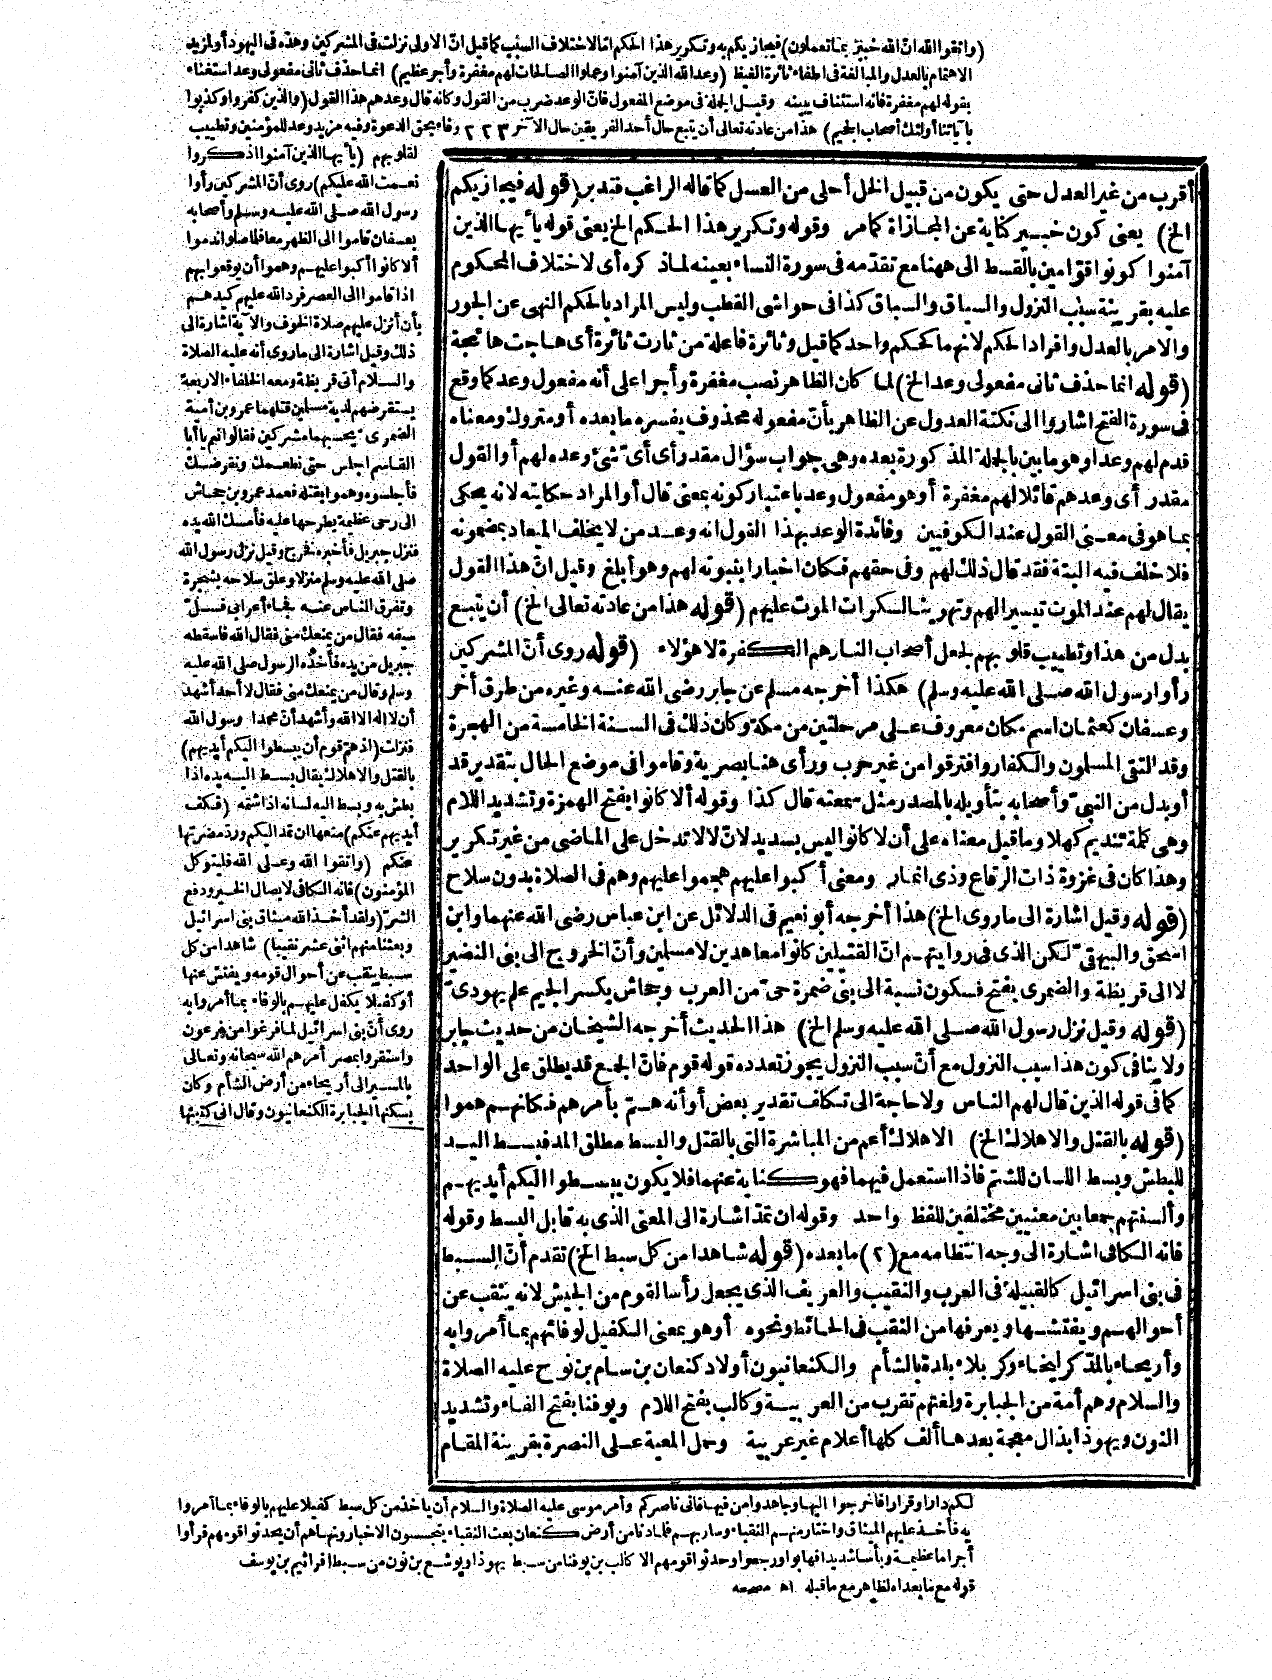 (واتقوا الله ان الله خبير بما تعملون) فيجازيكم به وتكرير هذا الحكم اما لاختلاف السبب كما قيل ان الاولى نزلت فى المشركين وهذه فى اليهود أو لمزيد
الاهتمام بالعدل والمبالغة فى اطفاء ثائرة الغيظ (وعد الله الذين آمنوا وعملوا الصالحات لهم مغفرة وأجر عظيم) انما حذف ثانى مفعولى وعد استغناء
بقوله لهم مغفرة فانه استئناف يبينه وقيل الجملة فى موضع المفعول فان الوعد ضرب من القول وكأنه قال وعدهم هذا القول (والذين كفروا وكذبوا
بآياتنا أولئك أصحاب الجحيم) هذا من عادته تعالى أن يتبع حال أحد الفريقين حال الآخر ٢٢٣ وفاء بحق الدعوة وفيه مزيد وعد للمؤمنين وتطييب
لقلوبهم (يا أيها الذين آمنوا اذكروا
نعمت الله عليكم) روى أن المشركين رأوا
رسول الله صلى الله عليه وسلم وأصحابه
بعسفان قاموا الى الظهر معا فلما صلوا ندموا
ألا كانوا أكبوا عليهم وهموا أن يوقعوا بهم
اذا قاموا الى العصر فرد الله عليهم كيدهم
بأن أنزل عليهم صلاة الخوف والآية اشارة الى
ذلك وقيل اشارة الى ما روى أنه عليه الصلاة
والسلام أتى قريظة ومعه الخلفاء الاربعة
يستقرضهم لدية مسلمين قتلهما عمرو بن أمية
الضمرى يحسبهما مشركين فقالوا نعم يا أبا
القاسم اجلس حتى نطعمك ونقرضك
فأجلسوه وهموا بقتله فعمد عمرو بن جحاش
الى رحى عظيمة يطرحها عليه فأمسك الله يده
فنزل جبريل فأخبره فخرج وقيل نزل رسول الله
صلى الله عليه وسلم منزلا وعلق سلاحه بشجرة
وتفرق الناس عنه فجاء أعرابى فسلّ
سيفه فقال من يمنعك منى فقال الله فاسقطه
جبريل من يده فأخذه الرسول صلى الله عليه
وسلم وقال من يمنعك منى فقال لا أحد أشهد
أن لا اله الا الله وأشهد أن محمدا رسول الله
فنزلت (اذ هم قوم أن يبسطوا اليكم أيديهم)
بالقتل والاهلاك يقال بسط اليه يده اذا
بطش به وبسط اليه لسانه اذا شتمه (فكف
أيديهم عنكم) منعها ان تمد اليكم ورد مضرتها
عنكم (واتقوا الله وعلى الله فليتوكل
المؤمنون) فانه الكافى لايصال الخير ودفع
الشر (ولقد أخذ الله ميثاق بنى اسرائيل
وبعثنا منهم اثنى عشر نقيبا) شاهدا من كل
سبط ينقب عن أحوال قومه ويفتش عنها
أو كفيلا يكفل عليهم بالوفاء بما أمروا به
روى أن بنى اسرائيل لما فرغوا من فرعون
واستقروا بمصر أمرهم الله سبحانه وتعالى
بالمسير الى أريحاء من أرض الشأم وكان
يسكنها الجبابرة الكنعانيون وقال انى كتبتها
أقرب من غير العدل حتى يكون من قبيل الخل أحلى من العسل كما قاله الراغب فتدبر (قوله فيجازيكم
الخ) يعنى كون خبير كناية عن المجازاة كما مر وقوله وتكرير هذا الحكم الخ يعنى قوله يا أيها الذين
آمنوا كونوا قوامين بالقسط الى ههنا مع تقدمه فى سورة النساء بعينه لماذا كره أى لاختلاف المحكوم
عليه بقرينة سبب النزول والسياق والسباق كذا فى حواشى القطب وليس المراد بالحكم النهى عن الجور
والامر بالعدل وافراد الحكم لانهما كحكم واحد كما قيل وثائرة فاعلة من ثارت ثائرة أى هاجت هائجة
(قوله انما حذف ثانى مفعولى وعد الخ) لما كان الظاهر نصب مغفرة وأجرا على أنه مفعول وعد كما وقع
فى سورة الفتح اشاروا الى نكتة العدول عن الظاهر بأن مفعوله محذوف يفسره ما بعده أو متروك ومعناه
قدم لهم وعدا وهو ما بين بالجملة المذكورة بعده وهى جواب سؤال مقدر أى أىّ شئ وعده لهم أو القول
مقدر أى وعدهم قائلا لهم مغفرة أو هو مفعول وعد باعتبار كونه بمعنى قال أو المراد حكايته لانه يحكى
بما هو فى معنى القول عند الكوفيين وفائدة الوعد بهذا القول انه وعد من لا يخلف الميعاد بمضمونه
فلا خلف فيه البتة فقد قال ذلك لهم وفى حقهم فكان اخبارا بثبوته لهم وهو أبلغ وقيل ان هذا القول
يقال لهم عند الموت تيسيرا لهم وتهوينا لسكرات الموت عليهم (قوله هذا من عادته تعالى الخ) أن يتبع
بدل من هذا وتطييب قلوبهم لجعل أصحاب النار هم الكفرة لا هؤلاء (قوله روى أن المشركين
رأوا رسول الله صلى الله عليه وسلم) هكذا أخرجه مسلم عن جابر رضى الله عنه وغيره من طرق أخر
وعسفان كعثمان اسم مكان معروف على مرحلتين من مكة وكان ذلك فى السنة الخامسة من الهجرة
وقد التقى المسلمون والكفار وافترقوا من غير حرب ورأى هنا بصرية وقاموا فى موضع الحال بتقدير قد
أو بدل من النبى وأصحابه بتأويله بالمصدر مثل سمعته قال كذا وقوله ألا كانوا بفتح الهمزة وتشديد اللام
وهى كلمة تنديم كهلا وما قيل معناه على أن لا كانوا ليس بسديد لان لا لا تدخل على الماضى من غير تكرير
وهذا كان فى غزوة ذات الرقاع وذى انمار ومعنى أكبوا عليهم هجموا عليهم وهم فى الصلاة بدون سلاح
(قوله وقيل اشارة الى ما روى الخ) هذا أخرجه أبو نعيم فى الدلائل عن ابن عباس رضى الله عنهما وابن
اسحق والبيهقى لكن الذى فى روايتهم ان القتيلين كانا معاهدين لا مسلمين وأن الخروج الى بنى النضير
لا الى قريظة والضمرى بفتح فسكون نسبة الى بنى ضمرة حىّ من العرب وجحاش بكسر الجيم علم يهودىّ
(قوله وقيل نزل رسول الله صلى الله عليه وسلم الخ) هذا الحديث أخرجه الشيخان من حديث جابر
ولا ينافى كون هذا سبب النزول مع أن سبب النزول يجوز تعدده قوله قوم فان الجمع قد يطلق على الواحد
كما فى قوله الذين قال لهم الناس ولا حاجة الى تكلف تقدير بعض أو أنه هم بأمرهم فكأنهم هموا
(قوله بالقتل والاهلاك الخ) الاهلاك أعم من المباشرة التى بالقتل والبسط مطلق المد فبسط اليد
للبطش وبسط اللسان للشتم فاذا استعمل فيهما فهو كناية عنهما فلا يكون يبسطوا اليكم أيديهم
وألسنتهم جمعا بين معنيين مختلفين للفظ واحد وقوله ان تمد اشارة الى المعنى الذى به قابل البسط وقوله
فانه الكافى اشارة الى وجه انتظامه مع (٢) ما بعده (قوله شاهدا من كل سبط الخ) تقدم أن السبط
فى بنى اسرائيل كالقبيلة فى العرب والنقيب والعريف الذى يجعل رأسا لقوم من الجيش لانه ينقب عن
أحوالهم ويفتشها ويعرفها من النقب فى الحائط ونحوه أو هو بمعنى الكفيل لوفائهم بما أمروا به
وأريحاء بالمد كزليخاء وكربلاء بلدة بالشأم والكنعانيون أولاد كنعان بن سام بن نوح عليه الصلاة
والسلام وهم أمة من الجبابرة ولغتهم تقرب من العربية وكالب بفتح اللام ويوفنا بفتح الفاء وتشديد
النون ويهوذا بذال معجمة بعدها ألف كلها أعلام غير عربية وحمل المعية على النصرة بقرينة المقام
لكم دارا وقرارا فاخرجوا اليها وجاهدوا من فيها فانى ناصركم وأمر موسى عليه الصلاة والسلام أن يأخذ من كل سبط كفيلا عليهم بالوفاء بما أمروا
به فأخذ عليهم الميثاق واختار منهم النقباء وسار بهم فلما دنا من أرض كنعان بعث النقباء يتجسسون الاخبار ونهاهم أن يحدثوا قومهم فرأوا
أجراما عظيمة وبأسا شديدا فهابوا ورجعوا وحدثوا قومهم الا كالب بن يوفنا من سبط يهوذا ويوشع بن نون من سبط افرائيم بن يوسف
قوله مع ما بعده الظاهر مع ما قبله اه مصححه